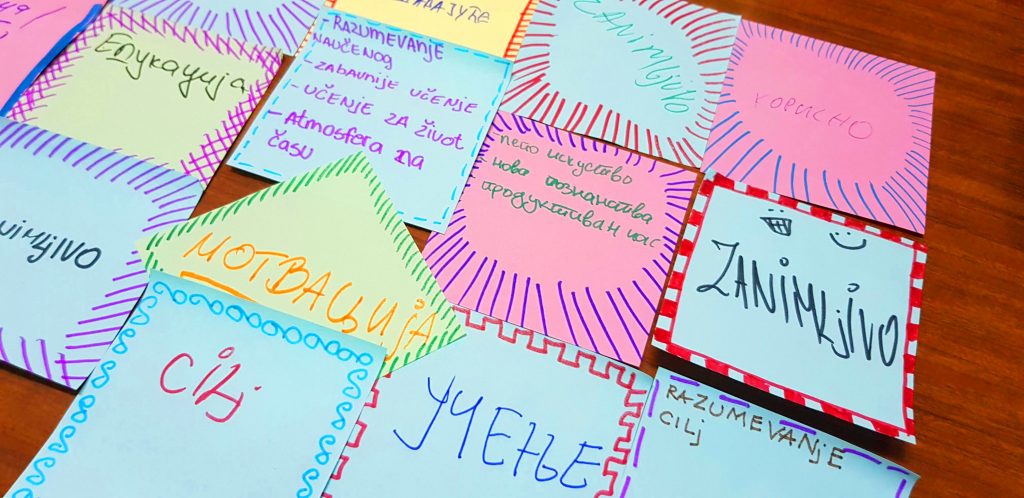 Едукација
- RAZUMEVANJE
NAUČENOG
- ZABAVNIJE UČENJE
- UČENJE ZA ŽIVOT
- Atmosfera na
ČASU
ZANIMLJIVO
КОРИСНО
лепо искуство
нова познанства
продуктиван час
МОТВАЦИЈА
ZANIMLJIVO
CILJ
УЧЕЊЕ
RAZUMEVANJE
CILJ